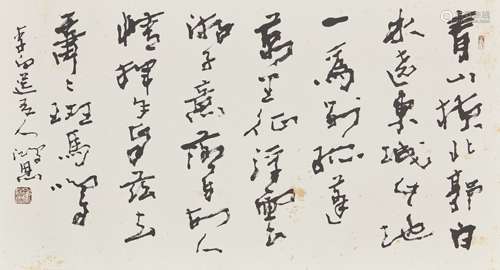 青山橫北郭白
水遶東城此地
一為別孤蓬
萬里征浮雲
游子意落日故人
情揮手自茲去
蕭々班馬鳴
李白送友人